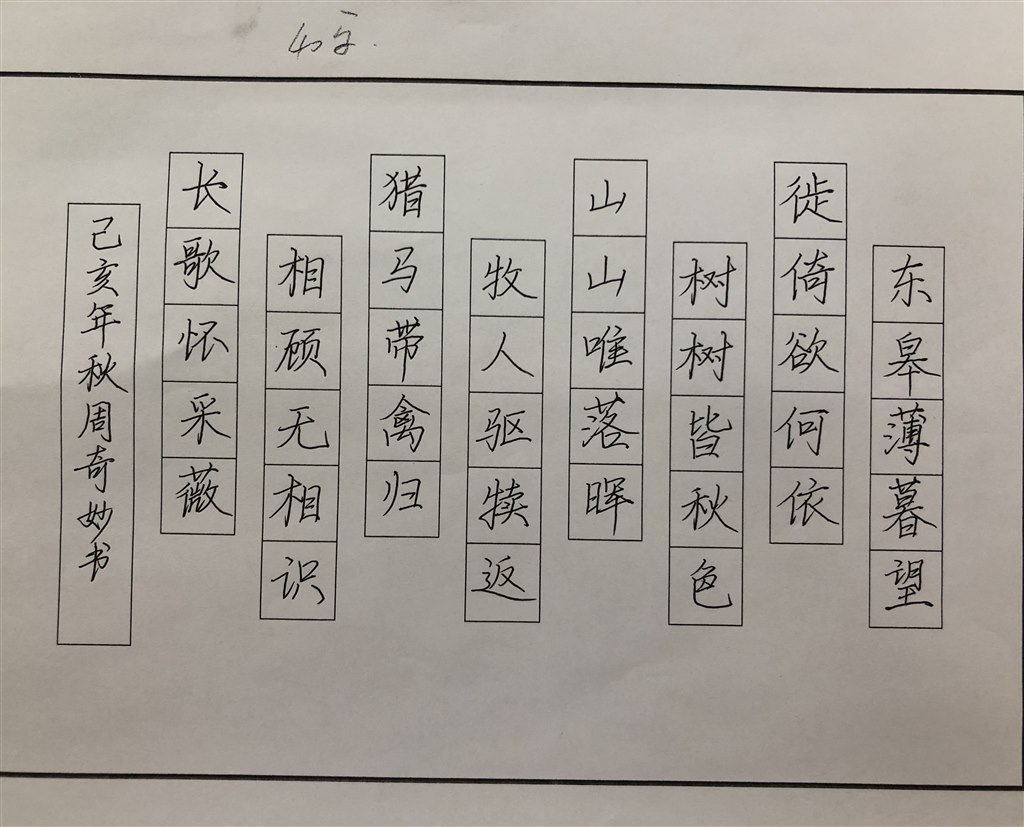 40字.
东皋薄暮望
徙倚欲何依
树树皆秋色
山山唯落晖
牧人驱犊返
猎马带禽归
相顾无相识
长歌怀采薇
己亥年秋周奇妙书